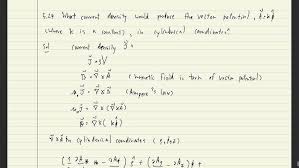 5.24 What current density would produce the vector potential, A = k φ̂
(where k is a constant), in cylindrical coordinates?
Sol current density J
J = σV
B = ∇ × A (magnetic field in term of vector potential)
μ₀J = ∇ × B (Ampere's law)
μ₀J = ∇ × (∇ × A)
B = ∇ × (k φ̂)
∇ × A in cylindrical coordinates (s, φ, z)